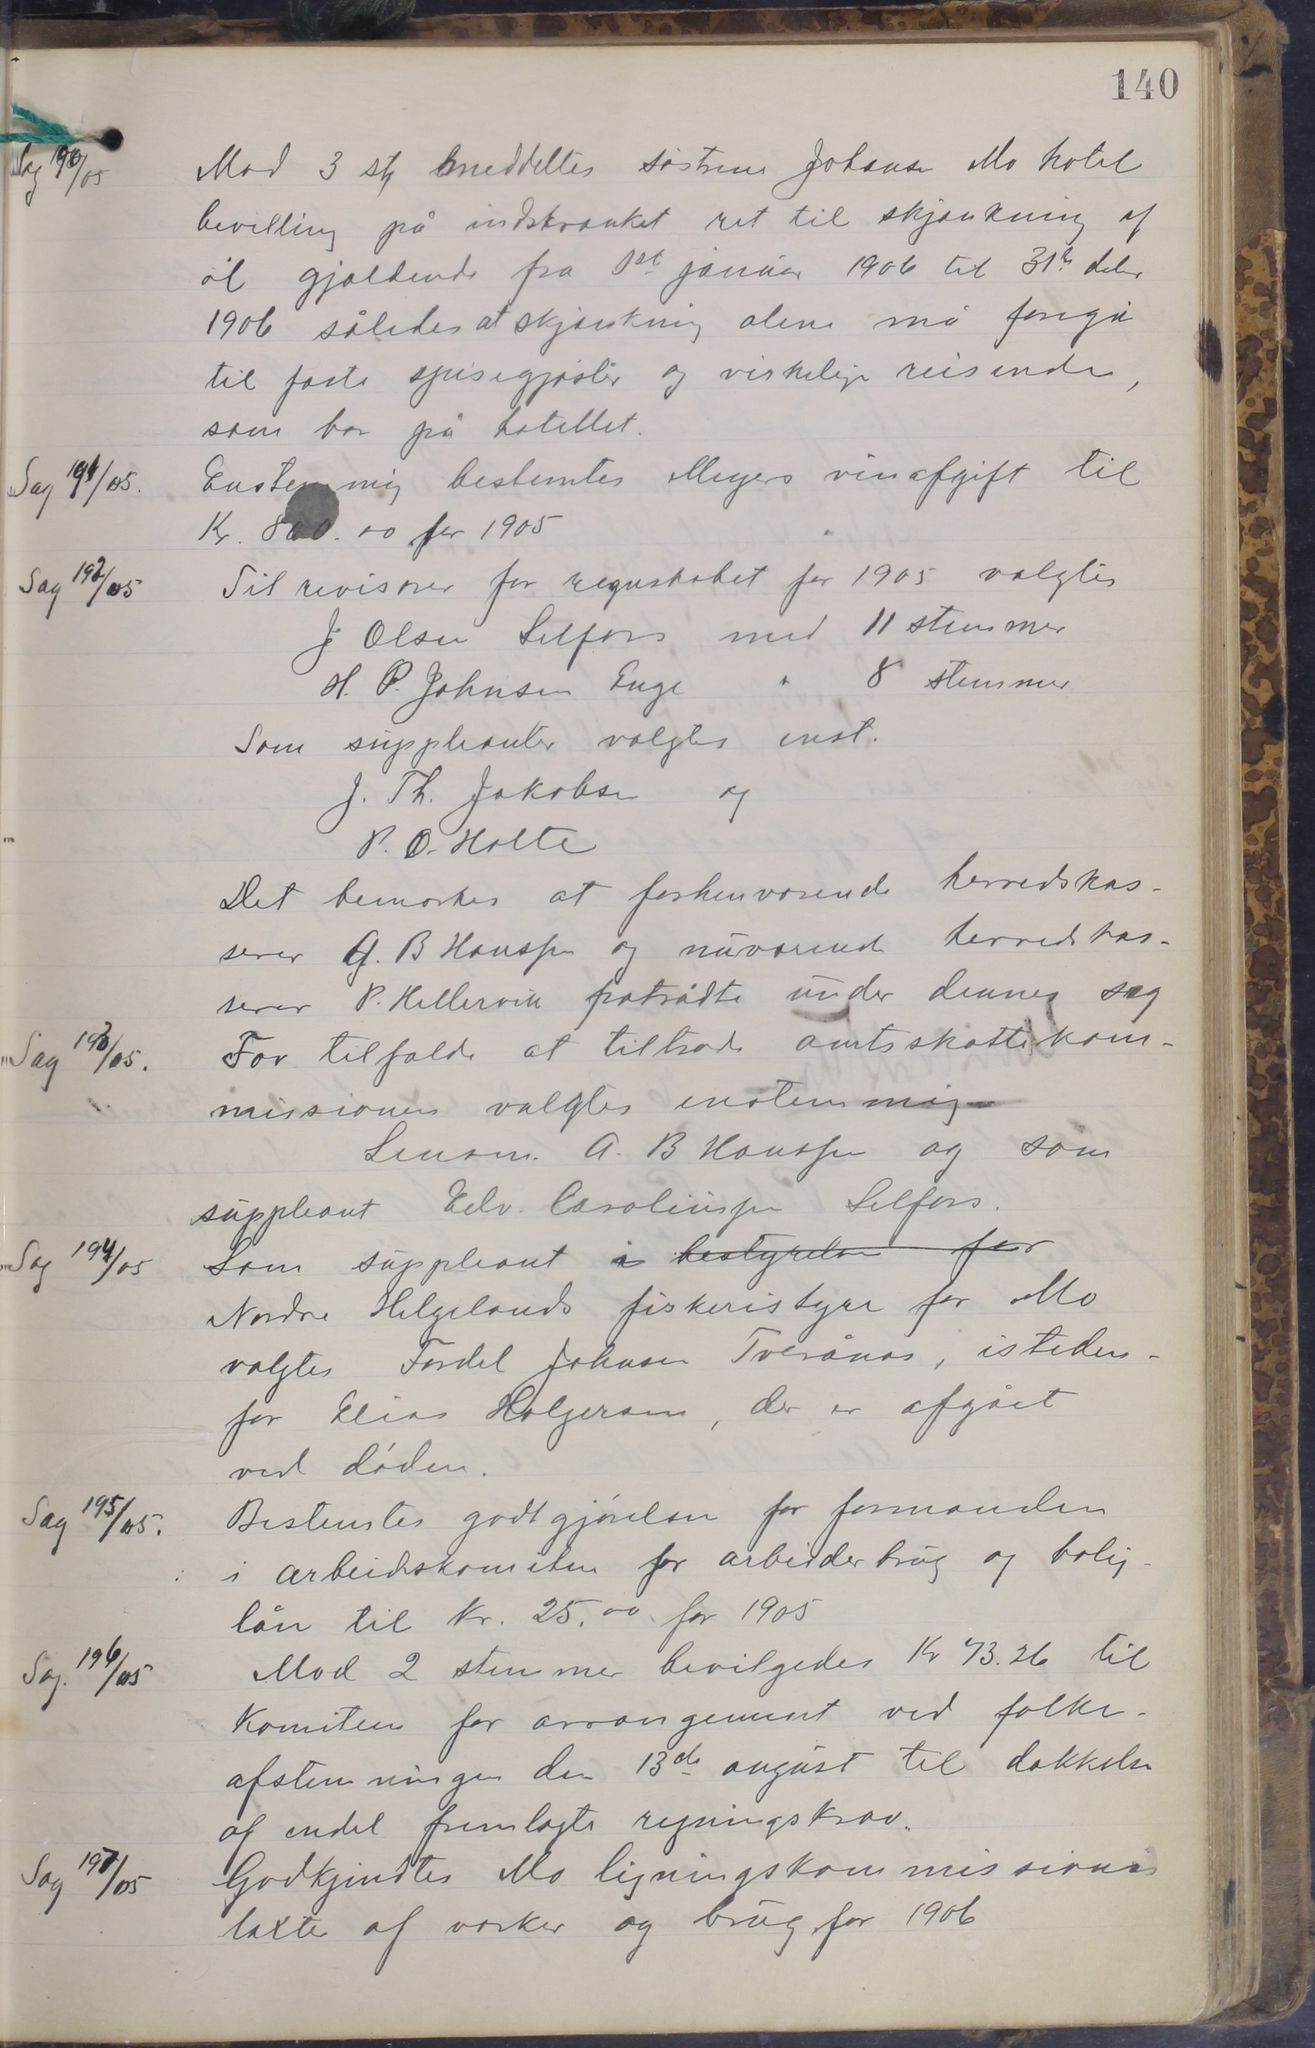 140
Sag 190/05 Mod 3 st. meddeltes søstrene Johansen Mo hotel
bevilling på indskrænket ret til skjænkning af
øl gjældende fra 1st januar 1906 til 31te debr
1906 således at skjænkning alene må foregå
til faste spisegjæster og virkelige reisende,
som bor på hotellet.
Sag 191/05. Enstemmig bestemtes Meyers vinafgift til
Kr. 800.00 for 1905
Sag 192/05 Til revisorer for regnskabet for 1905 valgtes
J Olsen Selfors med 11 stemmer
H. P. Johnsen Enge " 8 stemmer
Som suppleanter valgtes enst.
J. Th. Jakobsen og
P. O. Holte
Det bemærkes at forhenværende herredskas-
serer A. B Hanssen og nuværende herredskas-
serer P. Hellervik fratrådte under dennes sag
Sag 193/05. For tilfælde at tiltræde amtsskattekom-
missionen valgtes enstemmig
Lensm. A. B Hanssen og som
suppleant Edv. Caroliussen Selfors.
Sag 194/05 Som suppleant i bestyrelsen for
Nordre Helgelands fiskeristyre for Mo
valgtes Fordel Johnsen Tverånes, isteden-
for Elias Holgersen, der er afgået
ved døden.
Sag 195/05. Bestemtes godtgjørelsen for formanden
i arbeidskomiteen for arbeiderbrug og bolig-
lån til Kr. 25.00 for 1905
Sag. 196/05 Mod 2 stemmer bevilgedes Kr 73.26 til
Komiteen for arrangement ved folke-
afstemningen den 13de august til dækkelse
af endel fremlagte regningskrav.
Sag 197/05 Godkjendtes Mo ligningskommissions
takter af værker og brug for 1906